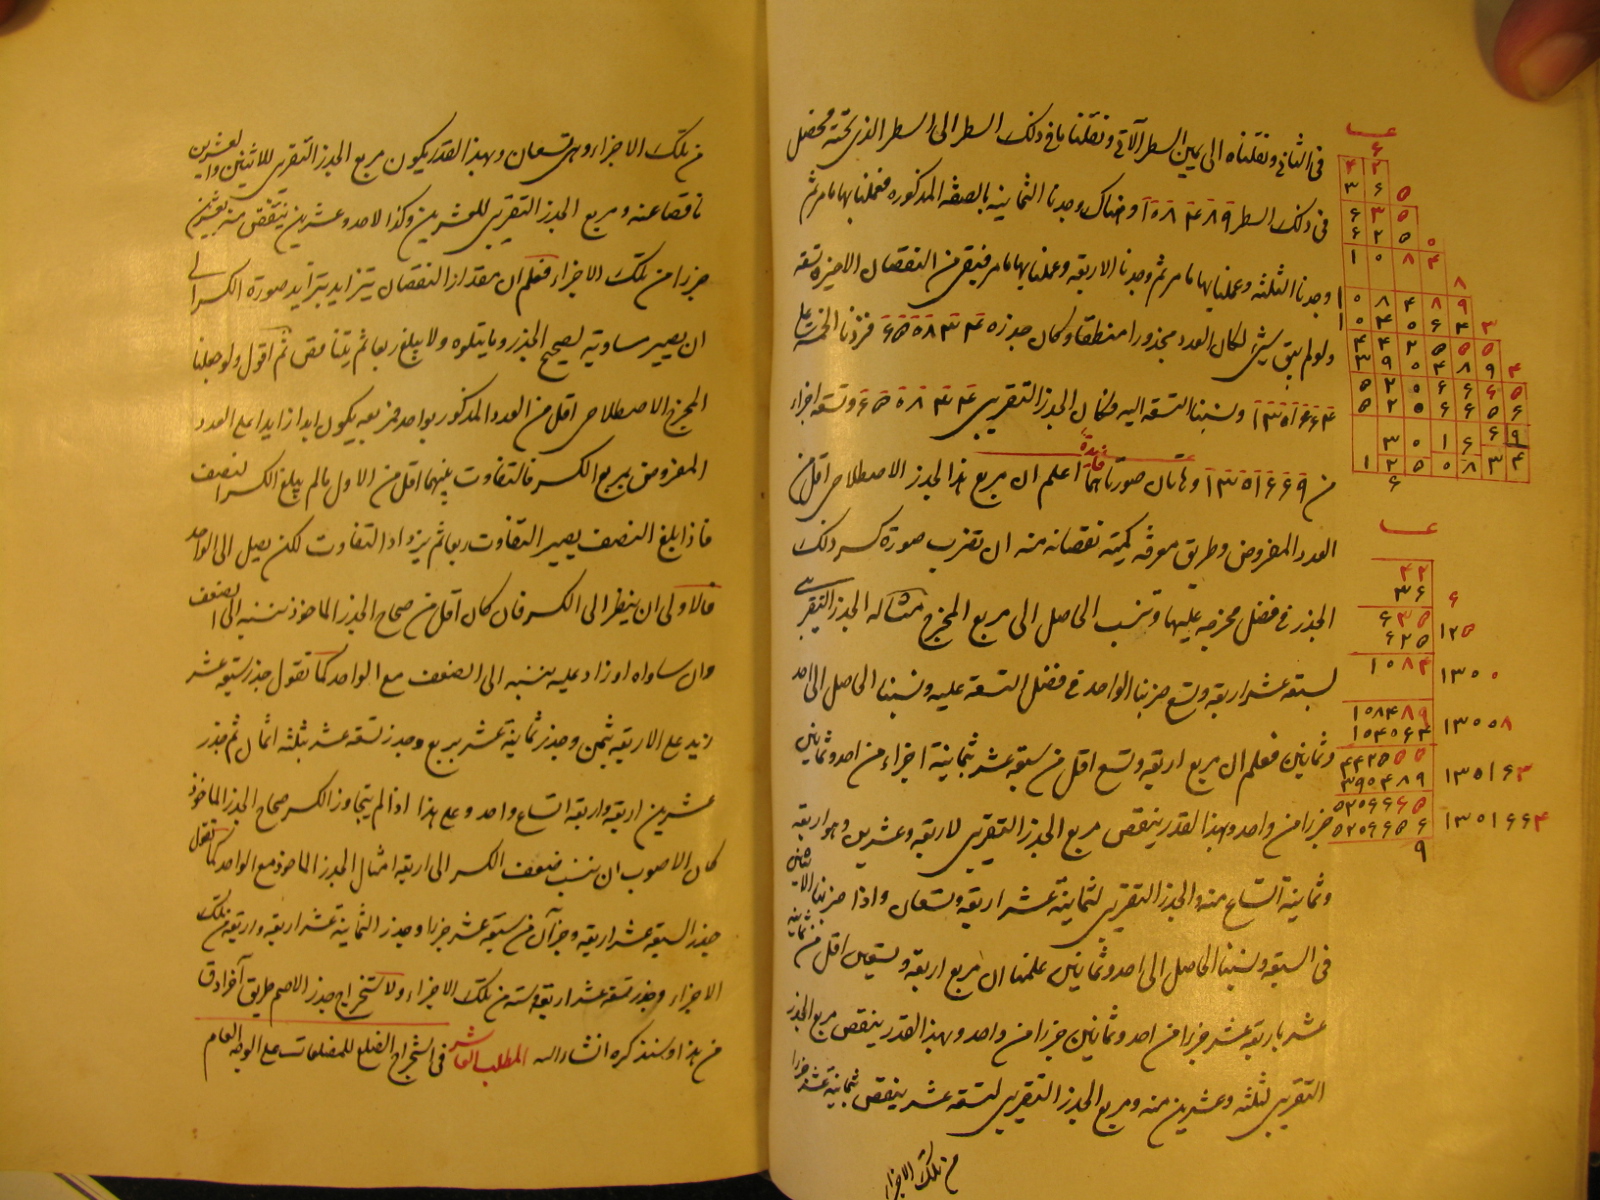 فى الثانى ونقلناه الى يمين السطر الآتى ونقلنا ما فى ذلك السطر الى السطر الذى تحته فحصل
فى ذلك السطر ١٠٨٤٨٩ وهناك وجدنا الثمانية بالصفة المذكورة فعملنا بها ما مر ثم
وجدنا الثلثة وعملنا بها ما مر ثم وجدنا الاربعة وعملنا بها ما مر فبقى من النقصان الاخيرة تسعة
ولو لم يبق شىء لكان العدد مجذورا منطقا وكان جذره ٦٥٥٨٣٤ فزدنا الخمسة على
١٣٥١٦٦٤ ونسبنا التسعة اليه فكان الجذر التقريبى ٦٥٥٨٣٤ وتسعة اجزاء
من ١٣٥١٦٦٩ وهاتان صورتاهما فائدة اعلم ان مربع هذا الجذر الاصطلاحى اقل من
العدد المفروض وطريق معرفة كمية نقصانه منه ان تضرب صورة كسر ذلك
الجذر فى فضل مخرجه عليها وتنسب الحاصل الى مربع المخرج مثاله الجذر التقريبى
لسبعة عشر اربعة وتسع ضربنا الواحد فى فضل التسعة عليه ونسبنا الحاصل الى احد
وثمانين فعلم ان مربع اربعة وتسع اقل من سبعة عشر بثمانية اجزاء من احد وثمانين
جزءا من واحد وبهذا القدر ينقص مربع الجذر التقريبى لاربعة وعشرين وهو اربعة
وثمانية اتساع منه والجذر التقريبى لثمانية عشر اربعة وتسعان واذا ضربنا الاثنين
فى السبعة ونسبنا الحاصل الى احد وثمانين علمنا ان مربع اربعة وتسعين اقل من ثمانية
عشر باربعة عشر جزءا من احد وثمانين جزءا من واحد وبهذا القدر ينقص مربع الجذر
التقريبى لثلثة وعشرين منه ومربع الجذر التقريبى لتسعة عشر ينقص بثمانية عشر جزءا
من تلك الاجزاء
٦
٤٢
٣٦
٦٣٥
٦٢٥
١٠٨٤
١٠٨٤٨٩
١٠٤٠٦٤
٤٤٢٥٥٥
٣٩٠٤٨٩
٥٢٠٦٦٦٥
٥٢٠٦٦٥٦
٩
٤٢
٣٦ ٦
٦٣٥
٦٢٥ ١٢٥
١٠٨٤ ١٣٠٠
١٠٨٤٨٩
١٠٤٠٦٤ ١٣٠٠٨
٤٤٢٥٥٥
٣٩٠٤٨٩ ١٣٠١٦٣
٥٢٠٦٦٦٥
٥٢٠٦٦٥٦ ١٣٠١٦٦٤
٩
من تلك الاجزاء وهى تسعان وبهذا القدر يكون مربع الجذر التقريبى للاثنين والعشرين
ناقصا عنه ومربع الجذر التقريبى للعشرين وكذا لاحد وعشرين ينتقص منه بعشرين
جزءا من تلك الاجزاء فعلم ان مقدار النقصان يتزايد بتزايد صورة الكسر الى
ان يصير مساوية لصحيح الجذر وما يتلوه ولا يبلغ ربعا ثم يتناقص ثم اقول ولو جعلنا
المخرج الاصطلاحى اقل من العدد المذكور بواحد فمربعه يكون ابدا زايدا على العدد
المفروض بمربع الكسر فالتفاوت بينهما اقل من الاول ما لم يبلغ الكسر النصف
فاذا بلغ النصف يصير التفاوت ربعا ثم يزداد التفاوت لكن يصل الى الواحد
فالاولى ان ينظر الى الكسر فان كان اقل من صحاح الجذر الماخوذ ننسبه الى الضعف
وان ساواه او زاد عليه ننسبه الى الضعف مع الواحد كما تقول جذر سبعة عشر
زيد على الاربعة بثمن وجذر ثمانية عشر بربع وجذر تسعة عشر بثلثة اثمان ثم جذر
عشرين اربعة واربعة اتساع واحد وعلى هذا اذا لم يتجاوز الكسر صحاح الجذر الماخوذ
كان الاصوب ان ننسب ضعف الكسر الى اربعة امثال الجذر الماخوذ مع الواحد كما تقول
جذر السبعة عشر اربعة وجزآن من سبعة عشر جزءا وجذر الثمانية عشر اربعة واربعة من تلك
الاجزاء وجذر تسعة عشر اربعة وستة من تلك الاجزاء ولاستخراج جذر الاصم طريق آخر ادق
من هذا وسنذكره انشاء الله المطلب العاشر فى استخراج الضلع للمضلعات على الوجه العام